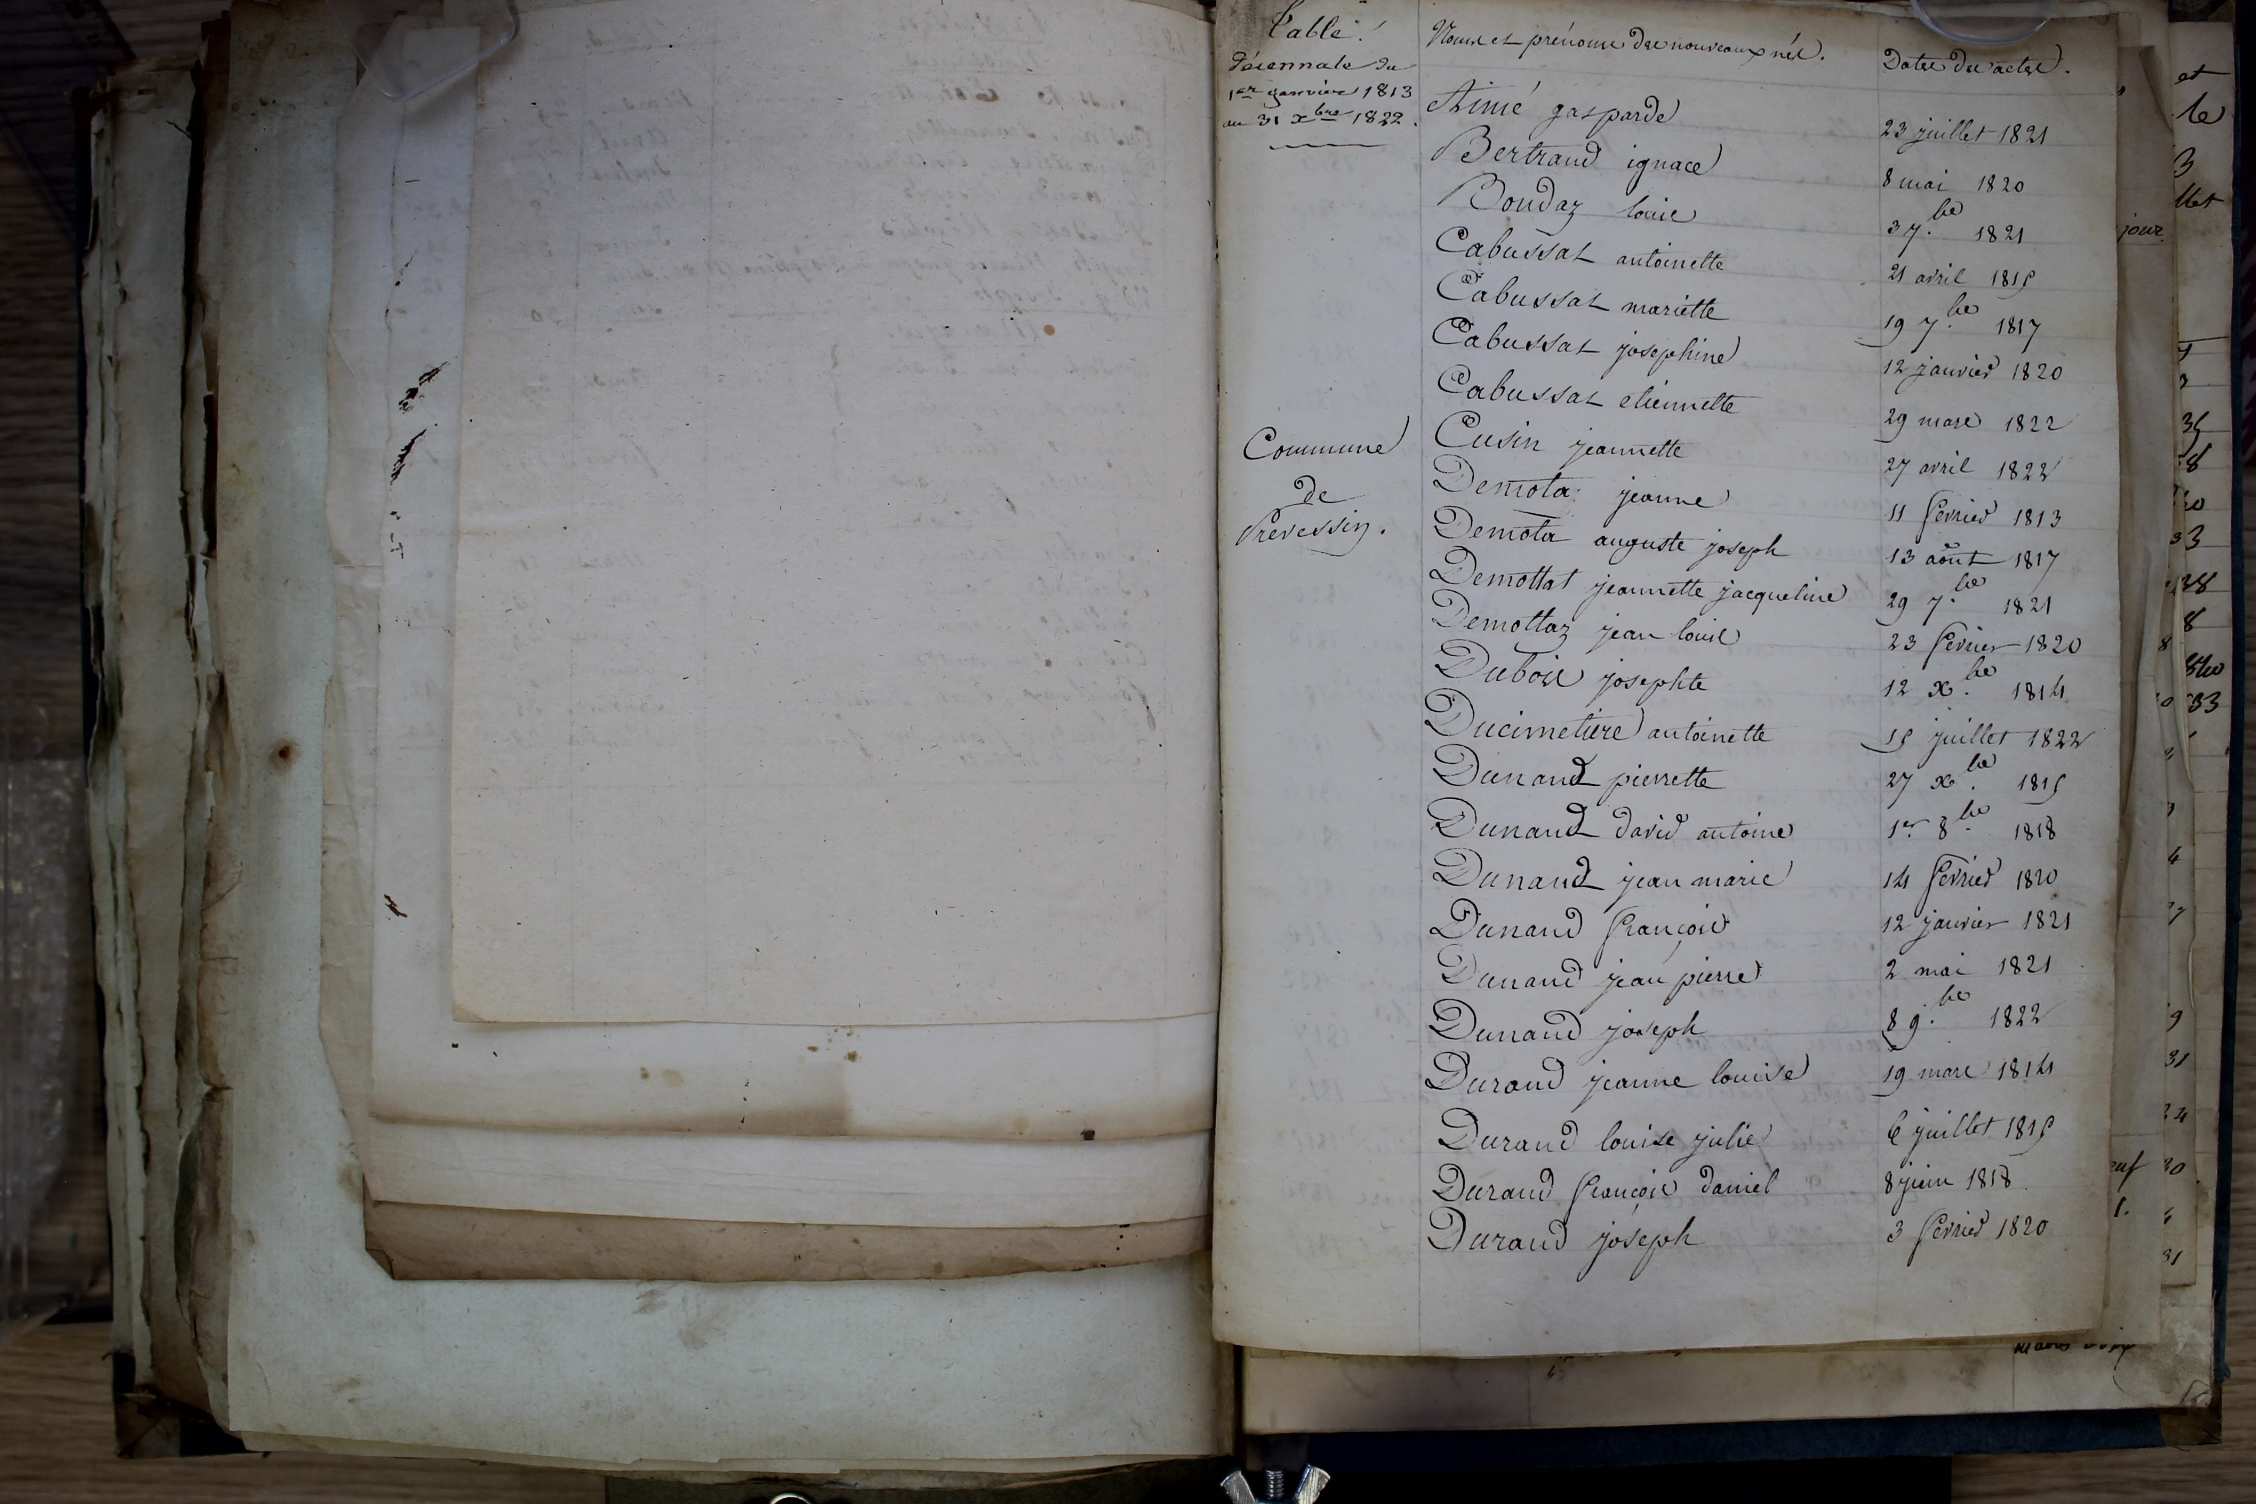 Table
décennale du
1er janvier 1813
au 31 xbre 1822.
Commune
de
Prevessin.
Noms et prénoms des nouveaux nés. Dates des actes.
Aimé gasparde 23 juillet 1821
Bertrand ignace 8 mai 1820
Boudaz louis 3 7.be 1821
Cabussat antoinette 21 avril 1815
Cabussat mariette 19 7.be 1817
Cabussat josephine 12 janvier 1820
Cabussat etiennette 29 mars 1822
Cusin jeannette 27 avril 1822
Demota jeanne 11 fevrier 1813
Demota auguste joseph 13 août 1817
Demottat jeannette jacqueline 29 7.be 1821
Demottaz jean louis 23 fevrier 1820
Dubois josephte 12 x.be 1814
Ducimetiere antoinette 15 juillet 1822
Dunand pierrette 27 x.be 1815
Dunand david antoine 1er 8.be 1818
Dunand jean marie 14 fevrier 1820
Dunand françois 12 janvier 1821
Dunand jean pierre 2 mai 1821
Dunand joseph 8 9.be 1822
Durand jeanne louise 19 mars 1814
Durand louise julie 6 juillet 1815
Durand françois daniel 8 juin 1818
Durand joseph 3 fevrier 1820